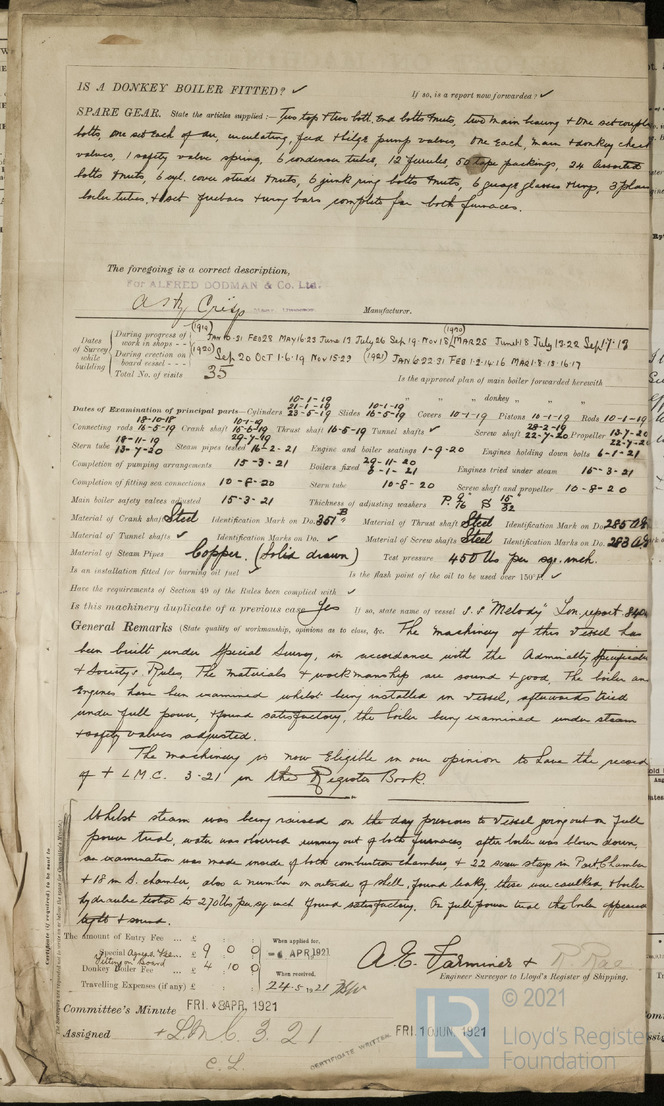 IS A DONKEY BOILER FITTED? ✓ If so, is a report now forwarded? ✓
SPARE GEAR. State the articles supplied:— Two top & two bott. end bolts & nuts, two main bearing & one set coupling
bolts, one set each of air, circulating, feed & bilge pump valves, one each, main & donkey check
valves, 1 safety valve spring, 6 condenser tubes, 12 ferrules, 50 tape packings, 24 assorted
bolts & nuts, 6 cyl. cover studs & nuts, 6 junk ring bolts & nuts, 6 guage glasses & rings, 3 plain
boiler tubes, & set firebars & wing bars complete for both furnaces.
The foregoing is a correct description,
For ALFRED DODMAN & Co. Ltd.
Crisp Manufacturer.
Dates of Survey while building
During progress of work in shops - - (1919) JAN 10-21 FEB 28 MAY 16-23 June 13 July 26 Sep 19 Nov 18 (1920) MAR 25 June 18 July 13-22 Sep 17-13
During erection on board vessel - - - (1920) Sep 20 OCT 1-6-19 Nov 15-29 (1921) JAN 6-22-31 FEB 1-2-14-16 MAR 1-8-15-16-17
Total No. of visits 35
Is the approved plan of main boiler forwarded herewith
" " " donkey " " "
Dates of Examination of principal parts—Cylinders 10-1-19 21-1-19 23-5-19 Slides 10-1-19 16-5-19 Covers 10-1-19 Pistons 10-1-19 Rods 10-1-19
Connecting rods 18-10-18 16-5-19 Crank shaft 10-1-19 16-6-19 Thrust shaft 16-5-19 Tunnel shafts ✓ Screw shaft 28-2-19 22-7-20 Propeller 13-7-20 22-7-20
Stern tube 18-11-19 13-7-20 Steam pipes tested 16-2-21 Engine and boiler seatings 1-9-20 Engines holding down bolts 6-1-21
Completion of pumping arrangements 15-3-21 Boilers fixed 29-11-20 6-1-21 Engines tried under steam 16-3-21
Completion of fitting sea connections 10-8-20 Stern tube 10-8-20 Screw shaft and propeller 10-8-20
Main boiler safety valves adjusted 15-3-21 Thickness of adjusting washers P. 9/16 S 15/32
Material of Crank shaft Steel Identification Mark on Do. 351 B Material of Thrust shaft Steel Identification Mark on Do. 285
Material of Tunnel shafts ✓ Identification Marks on Do. ✓ Material of Screw shafts Steel Identification Marks on Do. 283
Material of Steam Pipes Copper. (Solid drawn) Test pressure 450 lbs per sqr. inch.
Is an installation fitted for burning oil fuel ✓ Is the flash point of the oil to be used over 150°F. ✓
Have the requirements of Section 49 of the Rules been complied with ✓
Is this machinery duplicate of a previous case Yes If so, state name of vessel S.S "Melody" Lon. report
General Remarks (State quality of workmanship, opinions as to class, &c. The machinery of this Vessel has
been built under Special Survey, in accordance with the Admiralty Specification
& Society's Rules, The materials & workmanship are sound & good, The boiler and
Engines have been examined whilst being installed in vessel, afterwards tried
under full power, & found satisfactory, the boiler being examined under steam
& safety valves adjusted.
The machinery is now Eligible in our opinion to have the record
of + LMC. 3-21 in the Register Book.
Whilst steam was being raised on the day previous to vessel going out on full
power trial, water was observed running out of both furnaces, after boiler was blown down,
an examination was made inside of both combustion chambers & 22 screw stays in Port Chamber
& 18 in S. chamber, also a number on outside of shell, found leaky, these were caulked & boiler
hydraulic tested to 270 lbs per sq inch & found satisfactory. On full power trial the boiler appeared
tight & sound.
Certificate (if required) to be sent to
The amount of Entry Fee ... £ : : When applied for,
Special ... £ 9 : 0 : 0 -4 APR 1921
Fitting on Board
Donkey Boiler Fee ... £ 4 : 10 : 0 When received,
Travelling Expenses (if any) £ : : 24-5-1921
A.E. Farminer &
Engineer Surveyor to Lloyd's Register of Shipping.
Committee's Minute FRI. 8 APR. 1921
Assigned + L.M.C. 3.21 FRI. 10 JUN. 1921
C.L. CERTIFICATE WRITTEN
LR © 2021
Lloyd's Register
Foundation